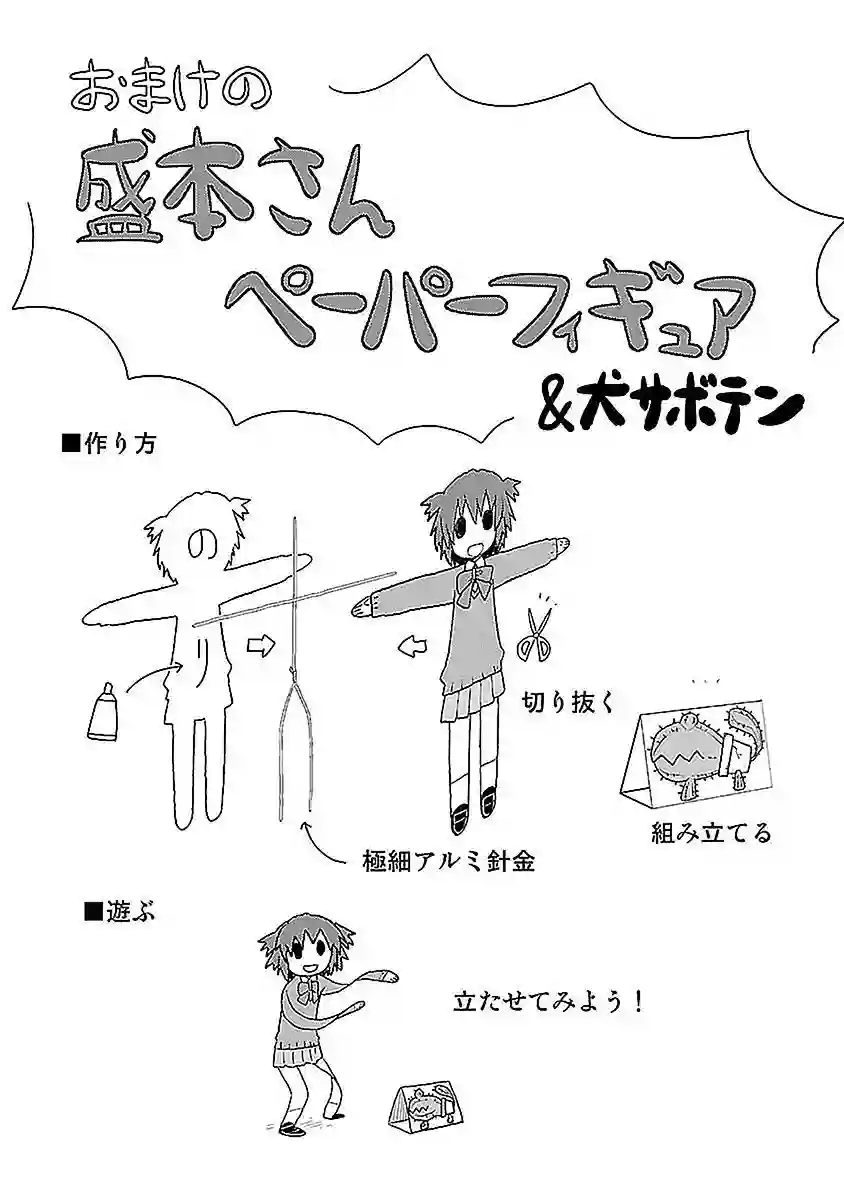 おまけの
盛本さん
ペーパーフィギュア
&犬サボテン
■作り方
の
り
切り抜く
組み立てる
極細アルミ針金
■遊ぶ
立たせてみよう！